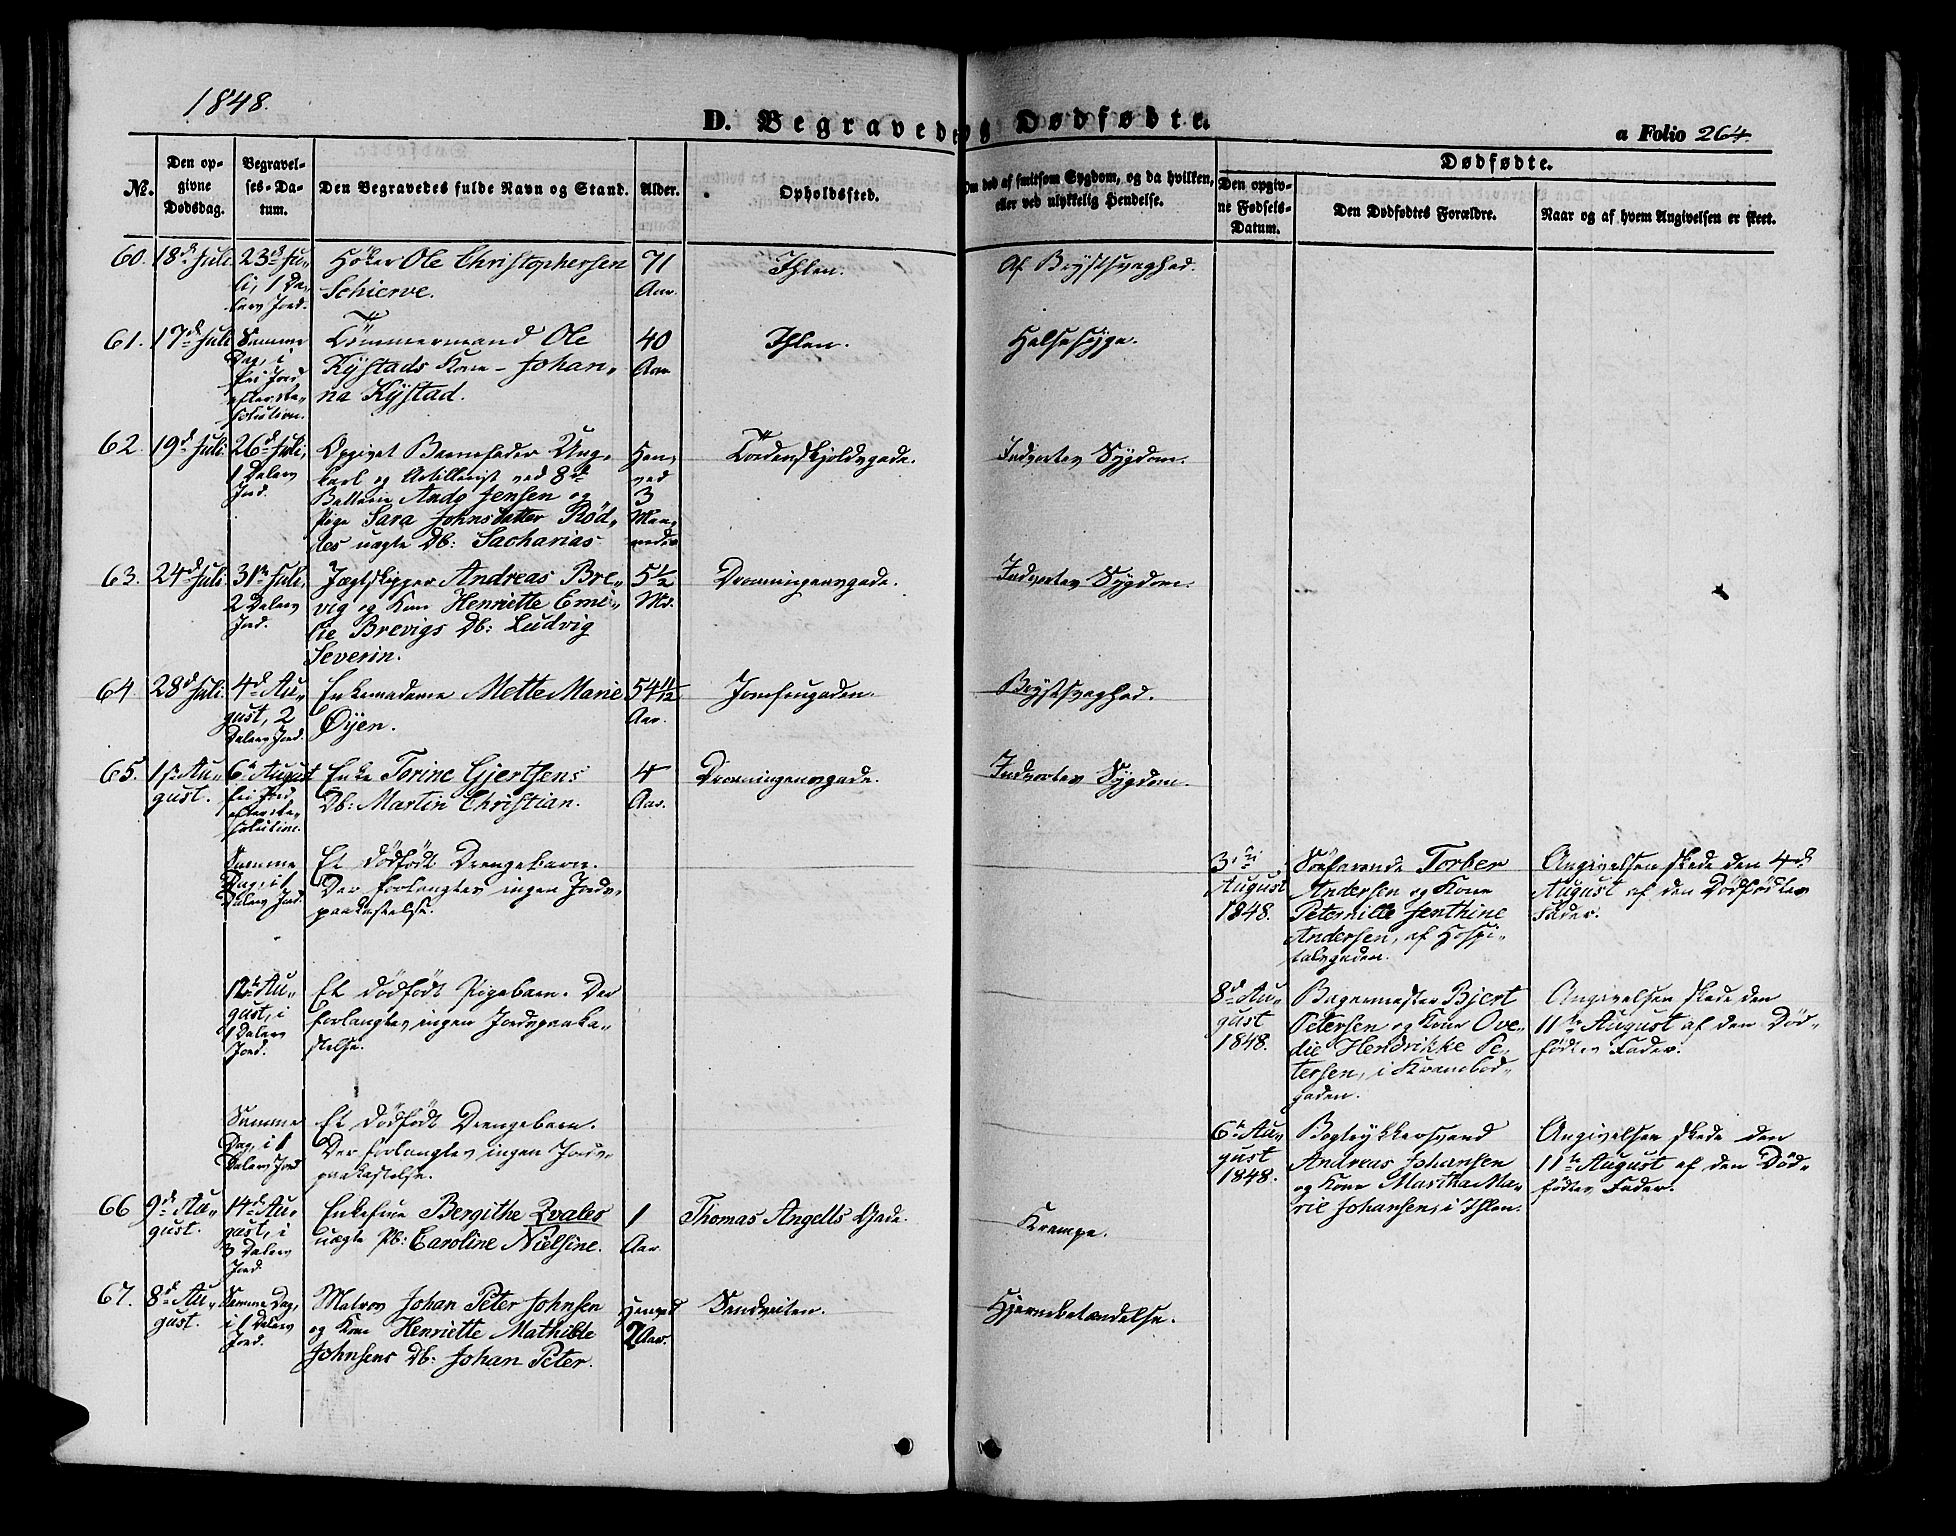 1848.
D. Begravede og Dødfødte.
a Folio 264.
№.
Den op-
givne
Dødsdag.
Begravel-
ses-Da-
tum.
Den Begravedes fulde Navn og Stand.
Alder.
Opholdssted.
Om død af smitsom Sygdom, og da hvilken,
eller ved ulykkelig Hendelse.
Dødfødte.
Den opgiv-
ne Fødsels-
Datum.
Den Dødfødtes Forældre.
Naar og af hvem Angivelsen er skeet.
60.
18de Juli.
23de Ju-
li, 1 Da-
lers Jord.
Høker Ole Christophersen
Schierve.
71
Aar.
Ihlen.
Af Brystsvaghed.
61.
17de Juli
Samme
Dag, i
fri Jord
efter Re-
solution.
Tømmermand Ole
Kystads Kone - Johan-
na Kystad.
40
Aar
Ihlen.
Halssyge.
62.
19de Juli.
26de Juli,
1 Dalers
Jord.
Opgivet Barnefader Ung-
karl og Artillerist ved 8de
Batterie Ands Jensen og
Pige Sara Johnsdatter Rød-
des uægte Db: Sacharias
Hen-
ved
3
Maa-
neder
Tordenskjoldsgade.
Indvortes Sygdom.
63.
24de Juli.
31te Juli.
2 Dalers
Jord.
Jægtskipper Andreas Bre-
vig og Kone Henriette Emi-
lie Brevigs Db: Ludvig
Severin.
5½
Md.
Dronningensgade.
Indvortes Sygdom.
64
28de Juli.
4de Au-
gust, 2
Dalers Jord.
Enkemadame Mette Marie
Øyen.
54 11/12
Aar.
Jomfrugaden.
Brystsvaghed.
65.
1ste Au-
gust.
6te August
fri Jord
efter Re-
solution.
Enke Torine Gjertsens
Db: Martin Christian.
4
Aar.
Dronningensgade.
Indvortes Sygdom.
Samme
Dag, i 1
Dalers Jord.
Et dødfødt Drengebarn.
Der forlangtes ingen Jords-
paakastelse.
3die
August
1848.
Søefarende Torber
Andersen og Kone
Peternille Jenthine
Andersen, af Hospi-
talsgaden.
Angivelsen skede den 4de
August af den Dødfødtes
Fader.
12te Au-
gust, i
1 Dalers
Jord.
Et dødfødt Pigebarn. Der
forlangtes ingen Jordspaaka-
stelse.
8de Au-
gust
1848.
Bagermester Bjert
Petersen og Kone Ove-
die Hendrikke Pe-
tersen, i Krambod-
gaden.
Angivelsen skede den
11te August af den Død-
fødtes Fader.
Samme
Dag, i 1
Dalers Jord
Et dødfødt Drengebarn.
Der forlangtes ingen Jords-
paakastelse.
6te Au-
gust
1848.
Bogtrykkersvend
Andreas Johansen
og Kone Martha Ma-
rie Johansen, i Ihlen.
Angivelsen skede den
11te August af den Død-
fødtes Fader.
66
9de Au-
gust.
14de Au-
gust, i
3 Dalers
Jord.
Enkefrue Bergithe Qvales
uægte Pb: Caroline Nielsine.
1
Aar.
Thomas Angells Gade.
Krampe.
67.
8de Au-
gust.
Samme Dag,
i 1 Dalers
Jord.
Matros Johan Peter Johnsen
og Kone Henriette Mathilde
Johnsens Db: Johan Peter.
Henved
2 Aar.
Sandviten.
Hjernebetændelse.